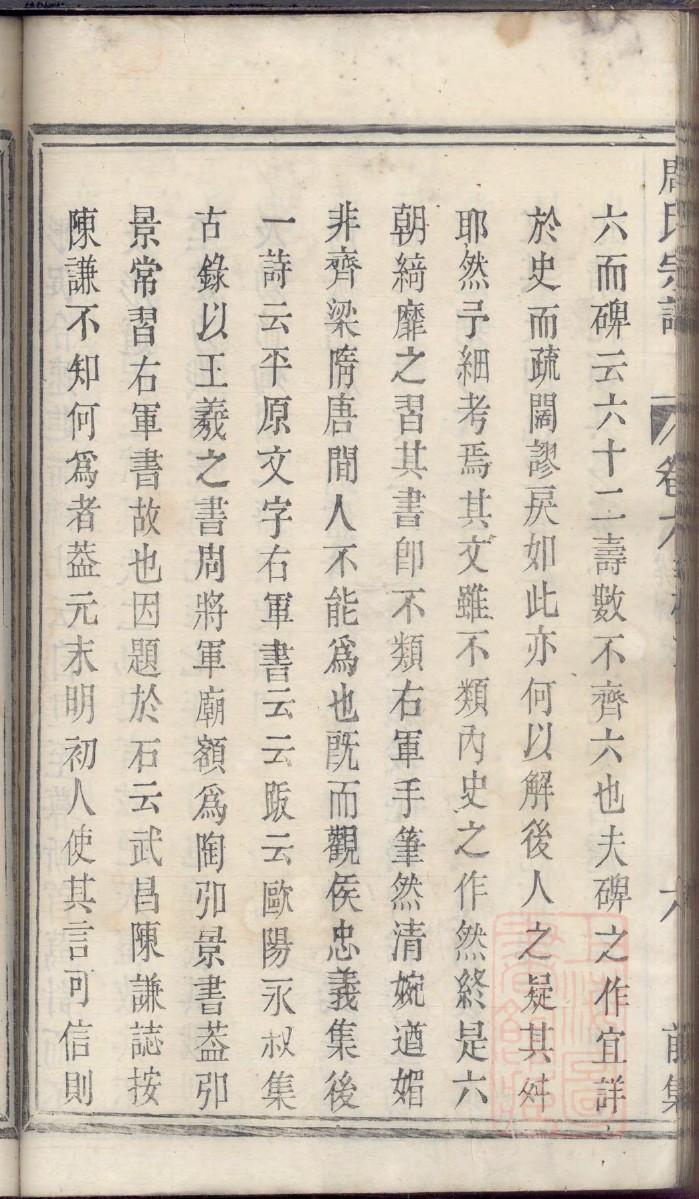 周氏宗譜 卷六 六 前集
六而碑云六十二壽數不齊六也夫碑之作宜詳
於史而疏闊謬戾如此亦何以解後人之疑其舛
耶然予細考焉其文雖不類內史之作然終是六
朝綺靡之習其書卽不類右軍手筆然清婉遒媚
非齊梁隋唐間人不能爲也旣而觀侯忠義集後
一詩云平原文字右軍書云云䟦云歐陽永叔集
古錄以王羲之書周將軍廟額爲陶弘景書葢弘
景常習右軍書故也因題於石云武昌陳謙誌按
陳謙不知何爲者葢元末明初人使其言可信則